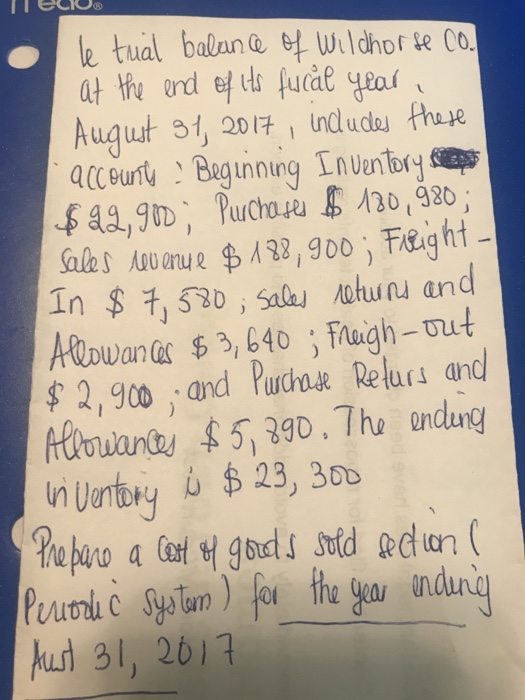 le trial balance of Wildhorse CO.
at the end of its fucal year,
August 31, 2017, includes these
accounts : Beginning Inventory
$ 22,900; Purchases $ 130,980;
Sales revenue $ 188,900; Freight-
In $ 7,580; Sales returns and
Allowances $ 3,640; Freigh-out
$ 2,900; and Purchase Returs and
Allowances $ 5,890. The ending
inventory is $ 23,300
Prepare a Cost of goods sold section (
Periodic System) for the year ending
Aust 31, 2017